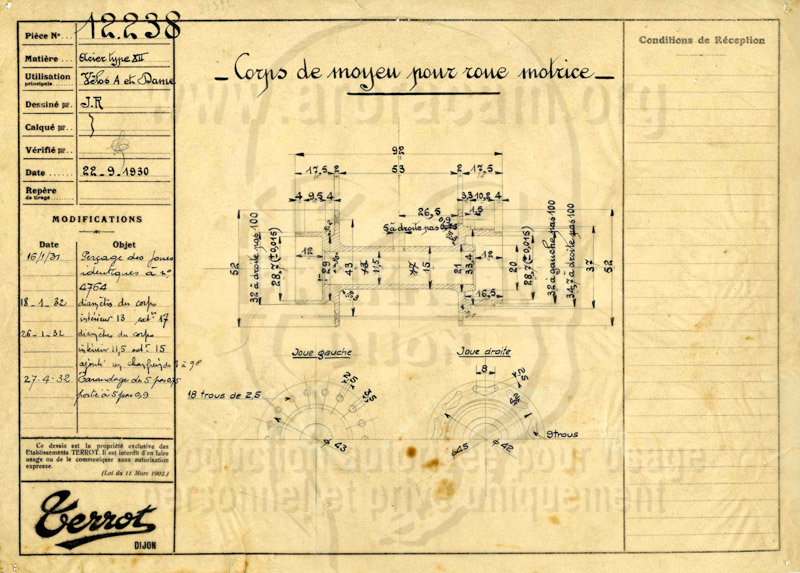 Pièce N° 12.238
Matière Acier type XII
Utilisation principale Vélos A et Dame
Dessiné par J.R
Calqué par
Vérifié par
Date 22_9_1930
Repère de tirage
MODIFICATIONS
Date Objet
16/1/31 Perçage des joues
identiques à n°
4764
18-1-32 diamètre du corps
intérieur 13 ext^r 17
26-1-32 diamètre du corps
intérieur 11,5 ext^r 15
27-4-32 Taraudage de 5 pas 0,75
porté à 5 pas 0,9
Ce dessin est la propriété exclusive des
Etablissements TERROT. Il est interdit d'en faire
usage ou de le communiquer sans autorisation
expresse.
(Loi du 11 Mars 1902.)
Terrot
DIJON
_ Corps de moyeu pour roue motrice _
Conditions de Réception
www.araracam.org
92
17,5 2 53 2 17,5
4 9,5 4 3,3 10,2 4
26,5 1,5
5 à droite pas 0,75 0,9
12 12
52 32 à droite pas 100 28,7 (±0,015) 29 43 13 11,5 17 15 21 33,4 20 32 à gauche pas 100 34,7 à droite pas 100 37 52
16,5
Joue gauche Joue droite
18 trous de 2,5
2,5
35
ϕ 43
8
2,5
9 trous
ϕ45 ϕ 42
personnel et privé uniquement